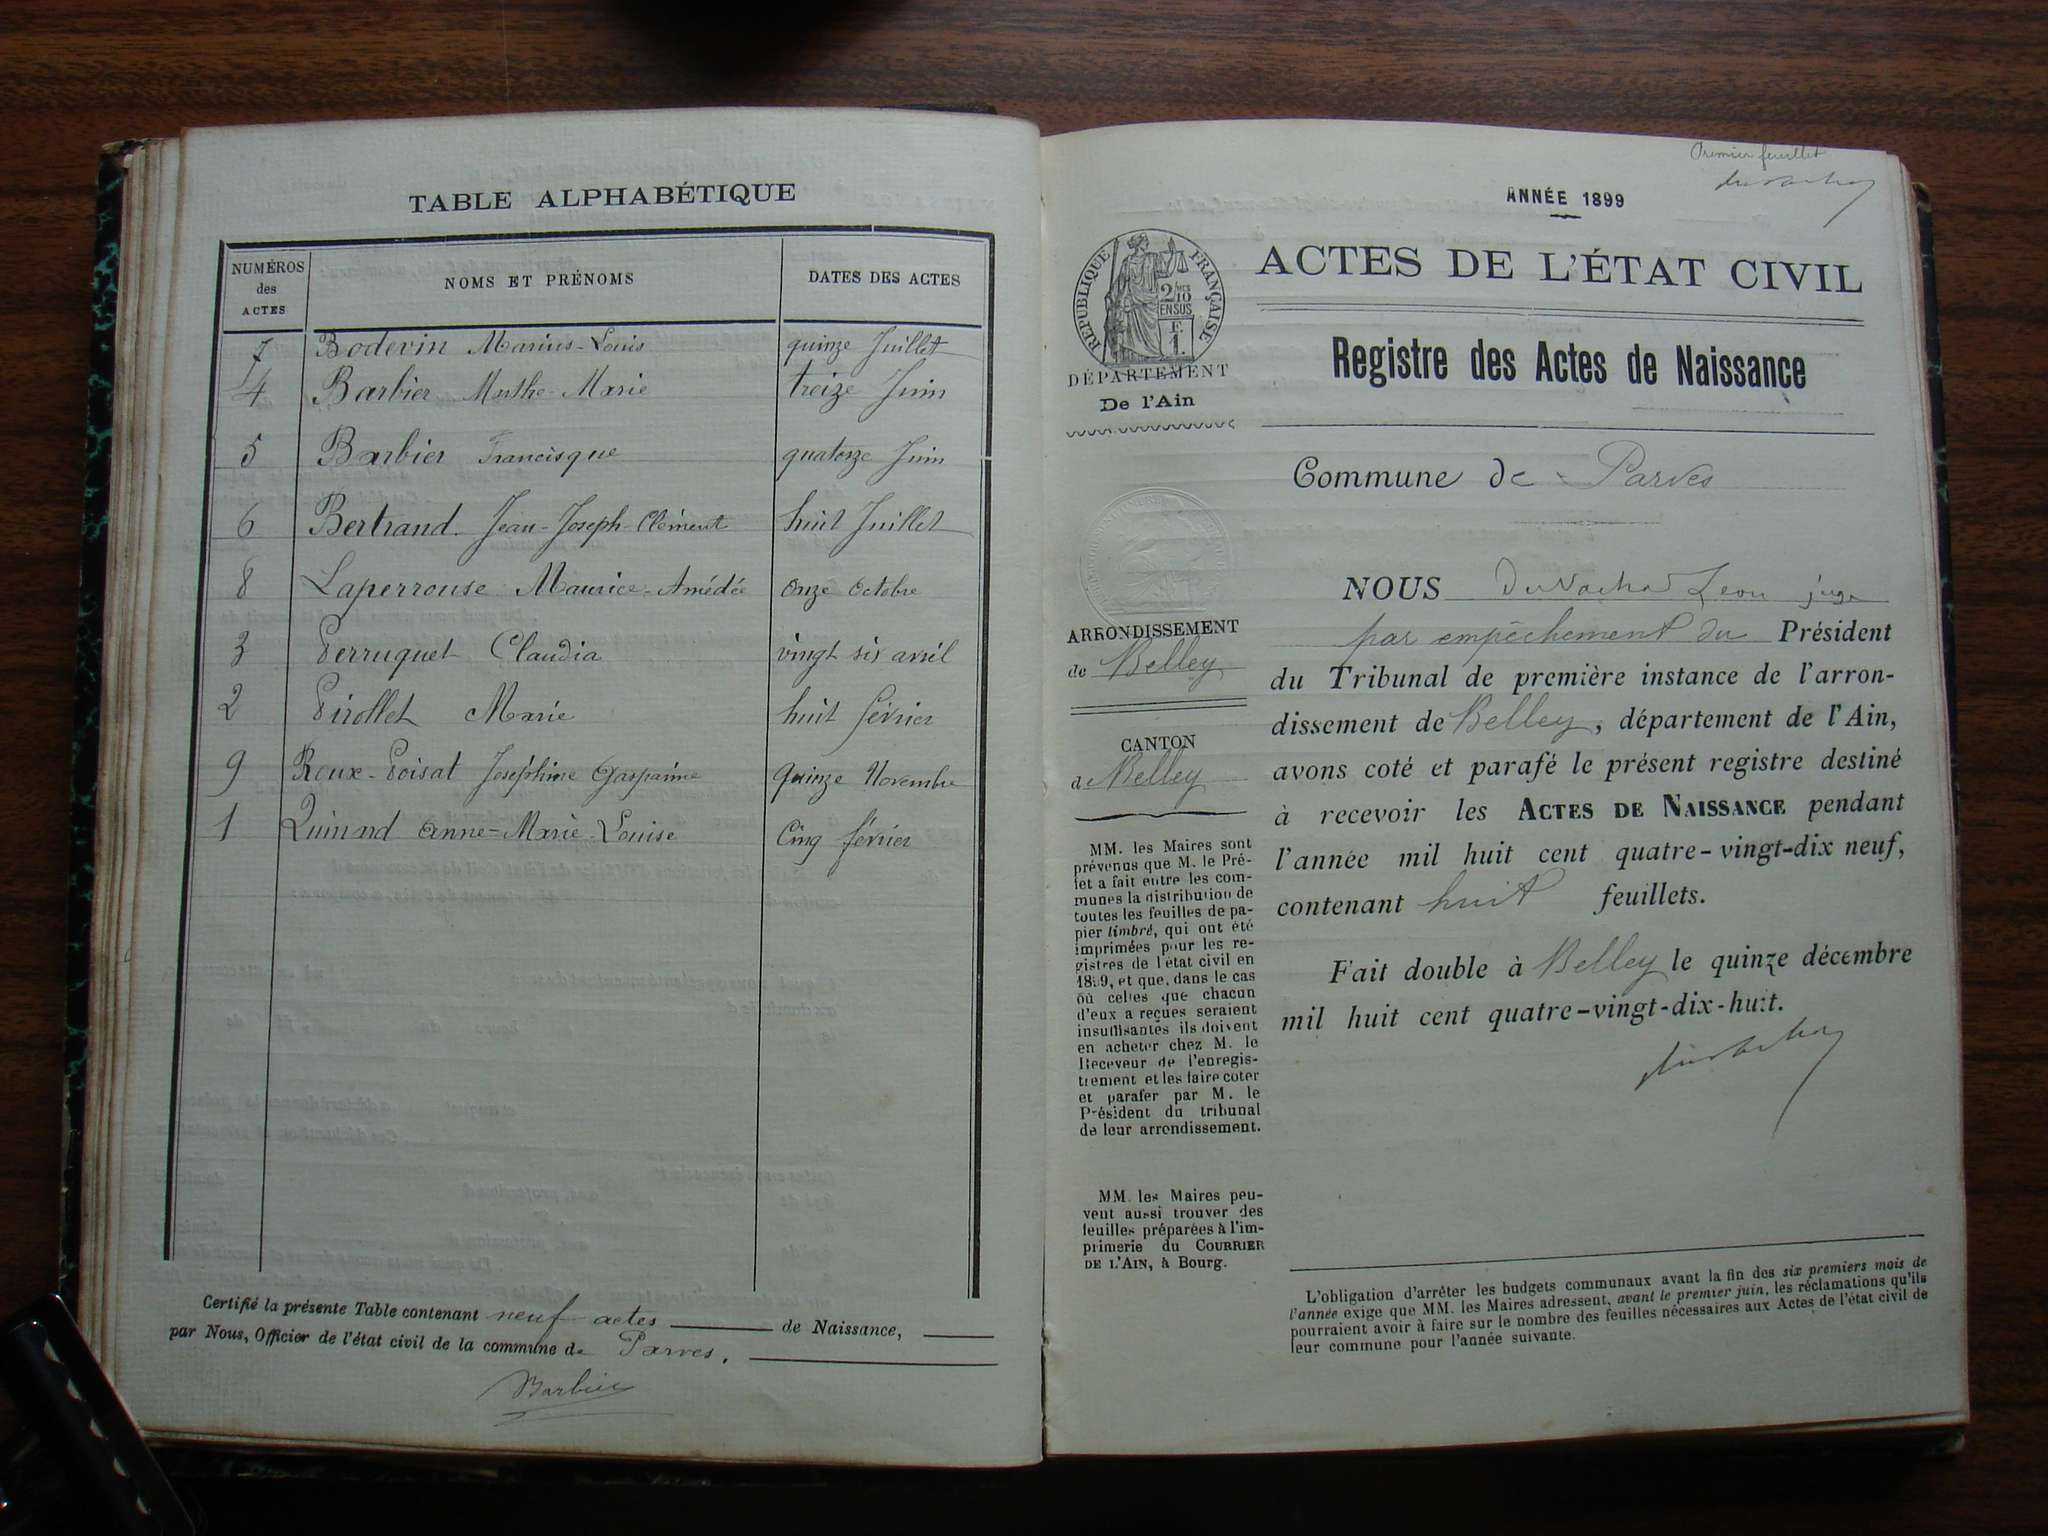 TABLE ALPHABÉTIQUE
NUMÉROS des ACTES | NOMS ET PRÉNOMS | DATES DES ACTES
7 Bodevin Marius-Louis quinze Juillet
4 Barbier Marthe-Marie treize Juin
5 Barbier Francisque quatorze Juin
6 Bertrand Jean-Joseph-Clément huit Juillet
8 Laperrouse Maurice-Amédée onze octobre
3 Perruquet Claudia vingt six avril
2 Pirollet Marie huit février
9 Roux-Poisat Joséphine Gasparine quinze Novembre
1 Quinard Anne-Marie-Louise Cinq février
Certifié la présente Table contenant neuf actes de Naissance,
par Nous, Officier de l'état civil de la commune de Parves.
Barbier
Premier feuillet
ANNÉE 1899
RÉPUBLIQUE FRANÇAISE
2/10
EN SUS
F.
1.
DÉPARTEMENT
De l'Ain
ACTES DE L'ÉTAT CIVIL
Registre des Actes de Naissance
Commune de Parves
ARRONDISSEMENT
de Belley
CANTON
d Belley
MM. les Maires sont
prévenus que M. le Pré-
fet a fait entre les com-
munes la distribution de
toutes les feuilles de pa-
pier timbré, qui ont été
imprimées pour les re-
gistres de l'état civil en
1899, et que, dans le cas
où celles que chacun
d'eux a reçues seraient
insuffisantes ils doivent
en acheter chez M. le
Receveur de l'enregis-
trement et les faire coter
et parafer par M. le
Président du tribunal
de leur arrondissement.
MM. les Maires peu-
vent aussi trouver des
feuilles préparées à l'im-
primerie du COURRIER
DE L'AIN, à Bourg.
NOUS Léon juge
par empêchement du Président
du Tribunal de première instance de l'arron-
dissement de Belley, département de l'Ain,
avons coté et parafé le présent registre destiné
à recevoir les ACTES DE NAISSANCE pendant
l'année mil huit cent quatre-vingt-dix neuf,
contenant huit feuillets.
Fait double à Belley le quinze décembre
mil huit cent quatre-vingt-dix-huit.
L'obligation d'arrêter les budgets communaux avant la fin des six premiers mois de
l'année exige que MM. les Maires adressent, avant le premier juin, les réclamations qu'ils
pourraient avoir à faire sur le nombre des feuilles nécessaires aux Actes de l'état civil de
leur commune pour l'année suivante.